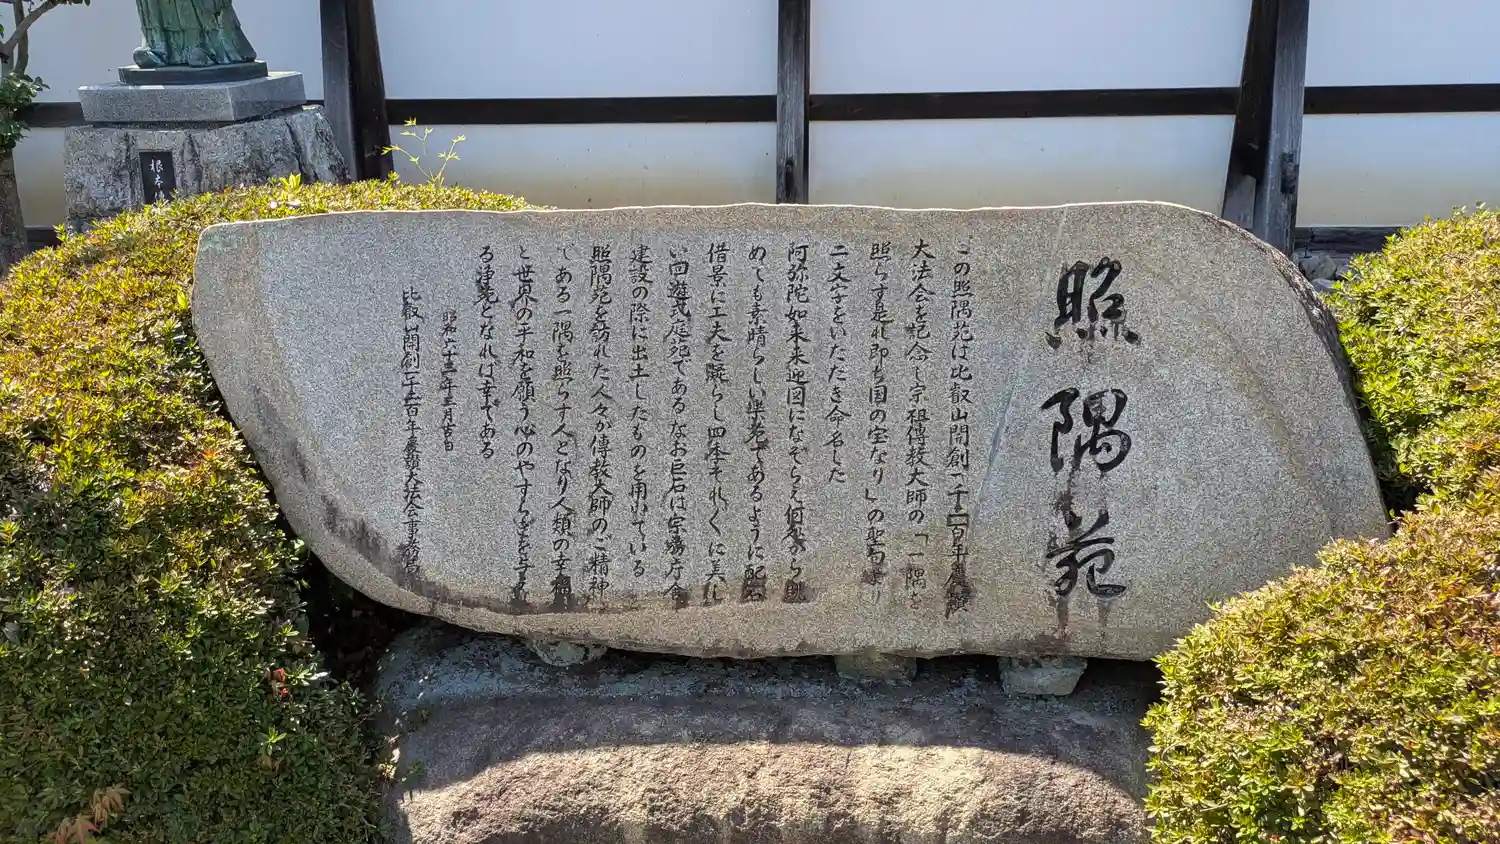 照隅苑
この照隅苑は比叡山開創一千二百年慶讃
大法会を記念し宗祖傳教大師の「一隅を
照らす是れ即ち国の宝なり」の聖句より
二文字をいただき命名した
阿弥陀如来来迎図になぞらえ何処から眺
めても素晴らしい学苑であるように配石
借景に工夫を凝らし四季それ〲に美し
い回遊式庭苑であるなお巨石は宗務庁舎
建設の際に出土したものを用いている
照隅苑を訪れた人々が傳教大師のご精神
である一隅を照らす人となり人類の幸福
と世界の平和を願う心のやすらぎを
る浄苑となれば幸である
昭和六十三年三月吉日
比叡山開創一千二百年慶讃大法会事務局
根本